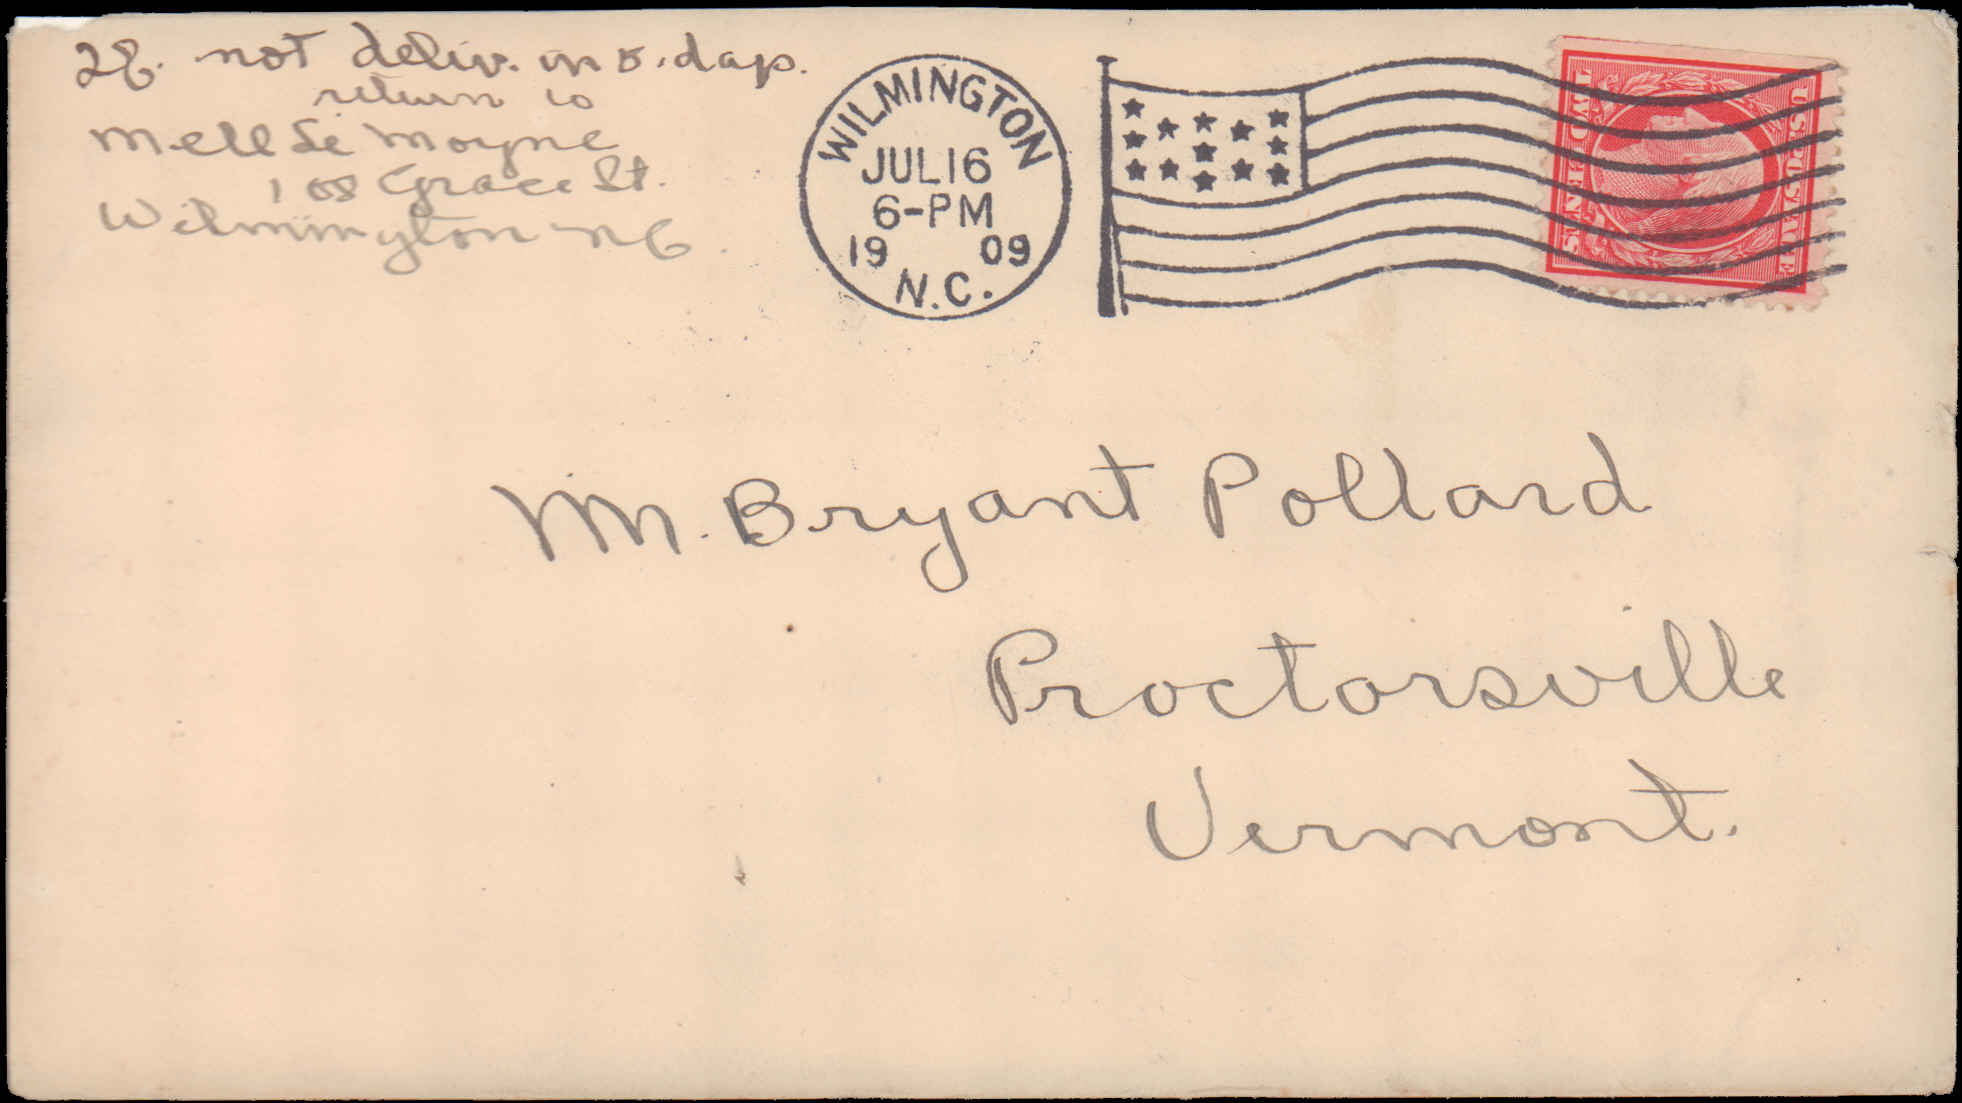 If. not deliv. in 5. days.
return to
Mell Le Moyne
108 Grace St.
Wilmington N C
WILMINGTON
JUL 16
6-PM
19 09
N.C.
U.S. POSTAGE
TWO CENTS
Mr. Bryant Pollard
Proctorsville
Vermont.